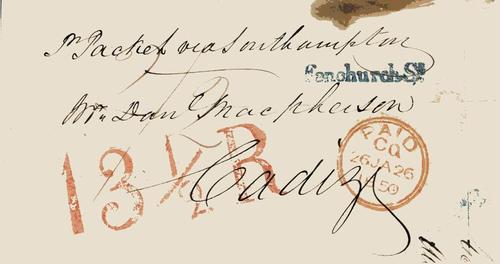 Pr Packet via Southampton
Fenchurch St
Danl Macpherson
Cadiz
13 1/2 R
PAID
CQ
26 JA 26
1850